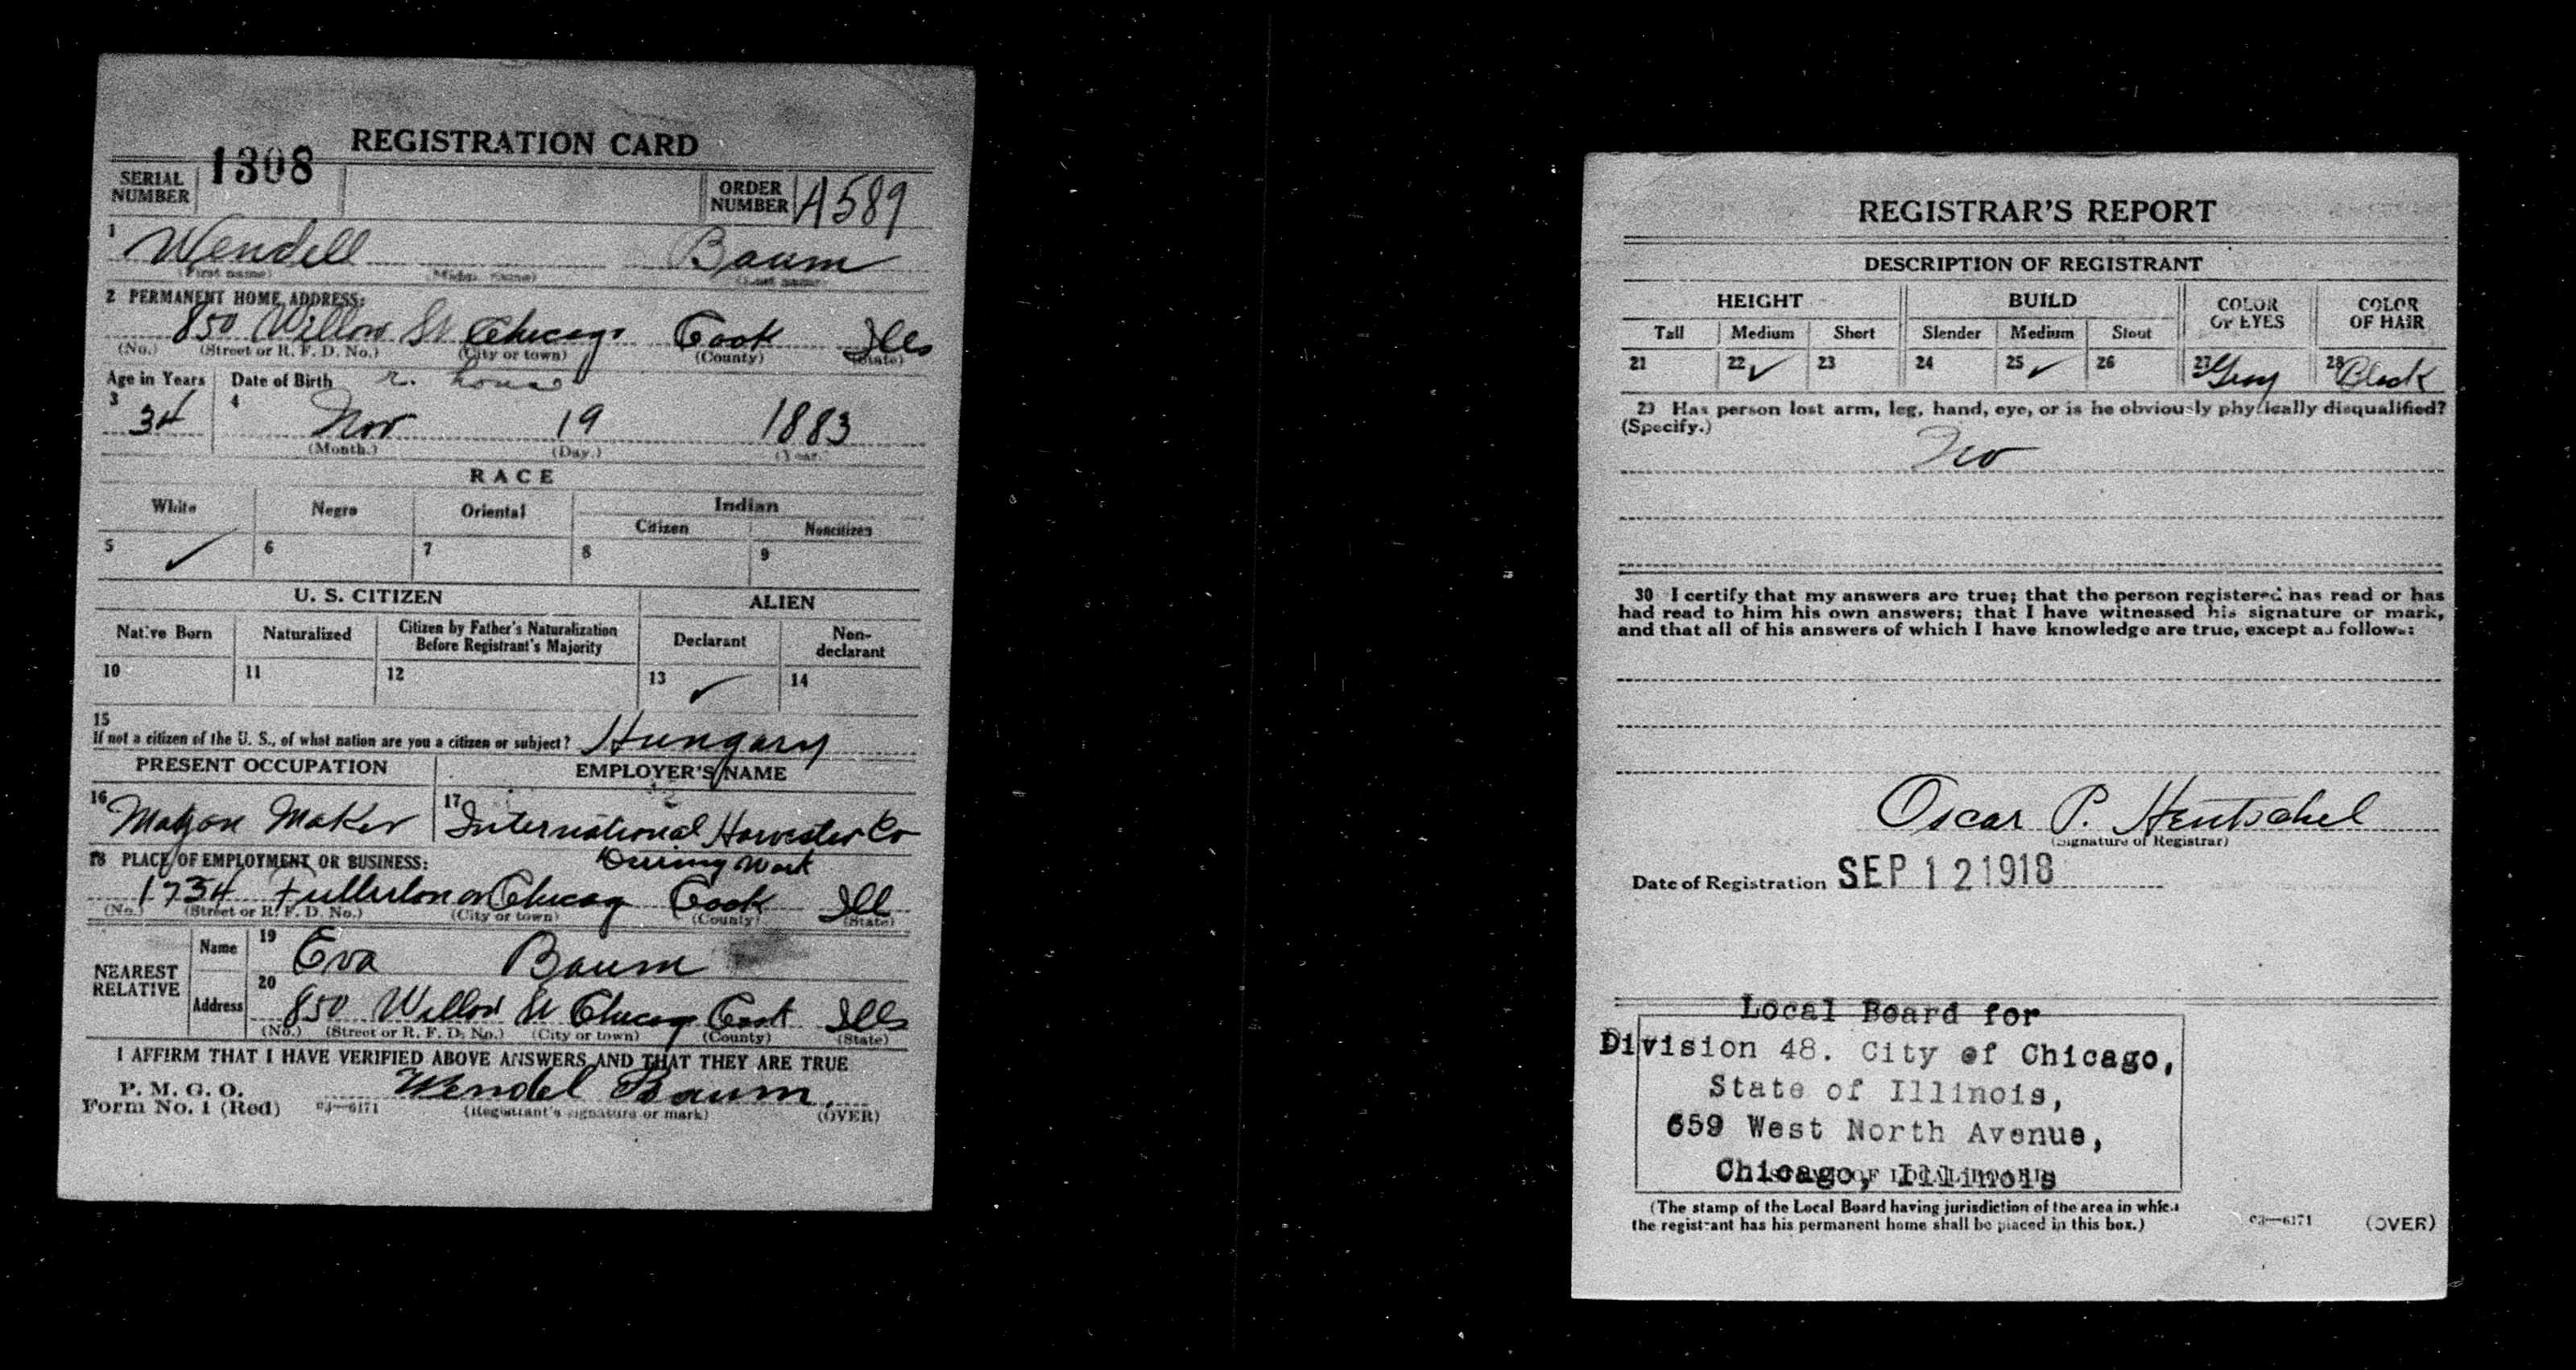 REGISTRATION CARD
SERIAL NUMBER 1308 ORDER NUMBER A589
1 Wendell Baum
(First name) (Last name)
2 PERMANENT HOME ADDRESS:
850 Willow St Chicago Cook Ills
(No.) (Street or R. F. D. No.) (City or town) (County) (State)
r. house
Age in Years Date of Birth
3 34 4 Nov 19 1883
(Month.) (Day.) (Year.)
RACE
White Negro Oriental Indian
Citizen Noncitizen
5 ✓ 6 7 8 9
U. S. CITIZEN ALIEN
Native Born Naturalized Citizen by Father's Naturalization Before Registrant's Majority Declarant Non-declarant
10 11 12 13 ✓ 14
15
If not a citizen of the U. S., of what nation are you a citizen or subject? Hungary
PRESENT OCCUPATION EMPLOYER'S NAME
16 Maker 17 International Harvester Co
18 PLACE OF EMPLOYMENT OR BUSINESS: Work
1734 Fullerton av Chicago Cook Ill
(No.) (Street or R. F. D. No.) (City or town) (County) (State)
NEAREST RELATIVE
Name 19 Eva Baum
Address 20 850 Willow St Chicago Cook Ills
(No.) (Street or R. F. D. No.) (City or town) (County) (State)
I AFFIRM THAT I HAVE VERIFIED ABOVE ANSWERS AND THAT THEY ARE TRUE
P. M. G. O.
Form No. 1 (Red) 03—6171 Wendel Baum.
(Registrant's signature or mark) (OVER)
REGISTRAR'S REPORT
DESCRIPTION OF REGISTRANT
HEIGHT BUILD COLOR OF EYES COLOR OF HAIR
Tall Medium Short Slender Medium Stout
21 22 ✓ 23 24 25 ✓ 26 27 Gray 28 Black
29 Has person lost arm, leg, hand, eye, or is he obviously physically disqualified?
(Specify.)
No
30 I certify that my answers are true; that the person registered has read or has
had read to him his own answers; that I have witnessed his signature or mark,
and that all of his answers of which I have knowledge are true, except as follows:
Oscar P. Hentschel
(Signature of Registrar)
Date of Registration SEP 12 1918
Local Board for
Division 48. City of Chicago,
State of Illinois,
659 West North Avenue,
Chicago, Illinois
(The stamp of the Local Board having jurisdiction of the area in which
the registrant has his permanent home shall be placed in this box.)
03—6171 (OVER)